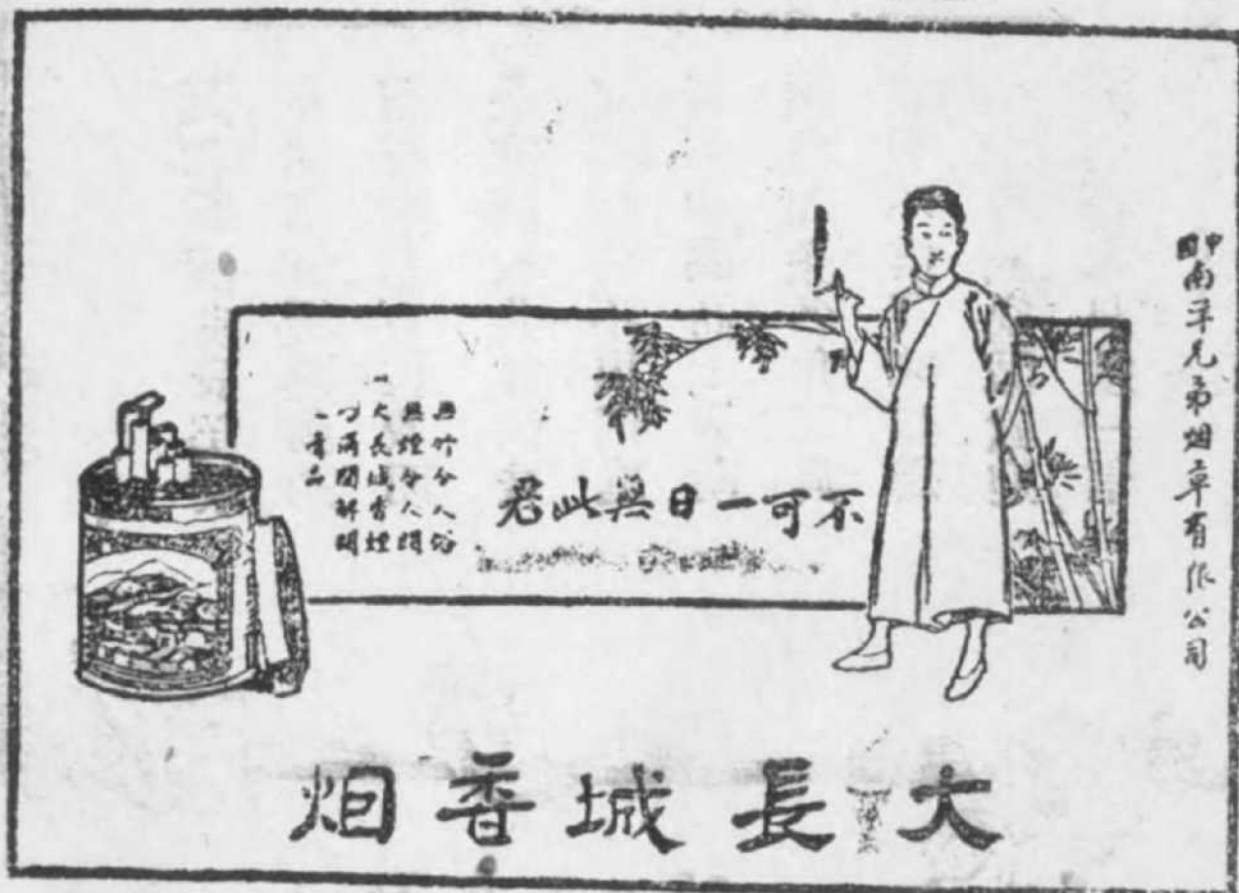 中國南洋兄弟烟草有限公司
不可一日無此君
無竹令人俗
無煙令人悶
大長城香煙
消閒解悶
品
大長城香烟